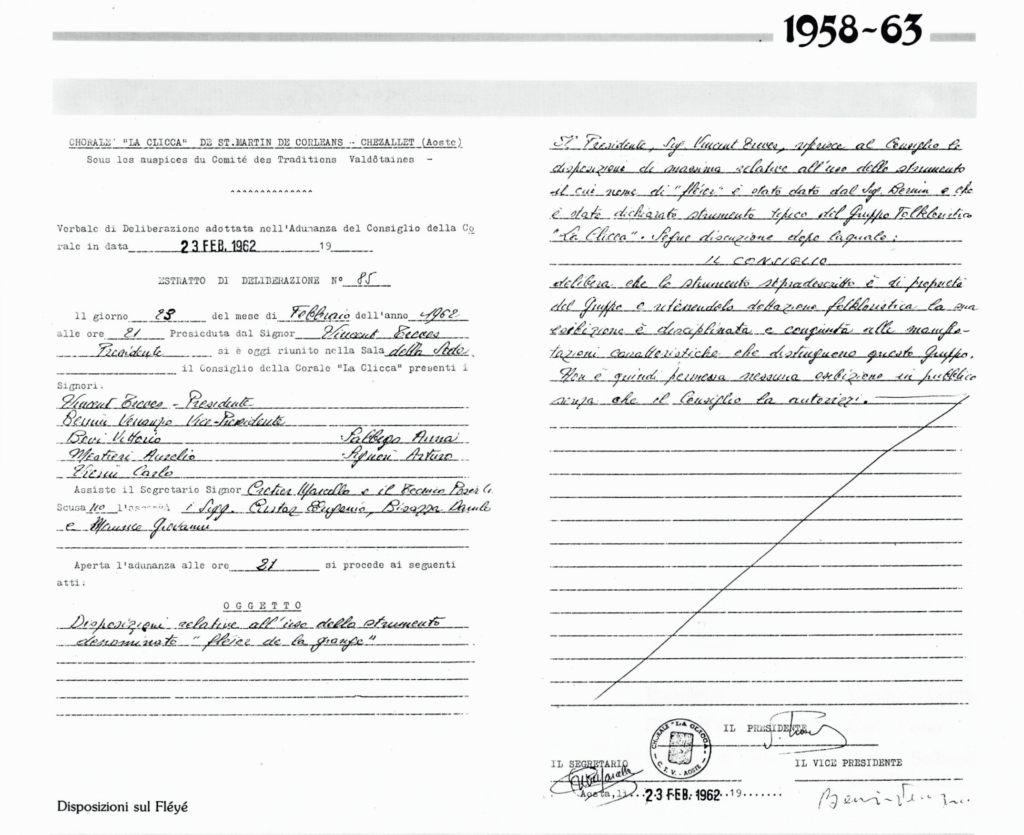 1958~63
CHORALE "LA CLICCA" DE ST.MARTIN DE CORLEANS - CHEZALLET (Aoste)
Sous los auspices du Comité des Traditions Valdôtaines -
Verbale di Deliberazione adottata nell'Adunanza del Consiglio della Co
rale in data 23 FEB. 1962 19
ESTRATTO DI DELIBERAZIONE N° 85
Il giorno 23 del mese di Febbraio dell'anno 1962
alle ore 21 Presieduta dal Signor Vincent Treves
Presidente si è oggi riunito nella Sala della Sede
il Consiglio della Corale "La Clicca" presenti i
Signori:
Vincent Treves - Presidente
Bernin Venanzio Vice-Presidente
Vittorio Anna
Aurelio Arturo
Carlo
Assiste il Segretario Signor Marcello e il Tecnico
Scusano i Sigg. Eugenio, Danilo
e Giovanni
Aperta l'adunanza alle ore 21 si procede ai seguenti
atti:
OGGETTO
Disposizioni relative all'uso dello strumento
denominato "fleïce de la grange"
Il Presidente, Sig. Vincent Treves, riferisce al Consiglio le
disposizioni di massima relative all'uso dello strumento
il cui nome di "fleïce" è stato dato dal Sig. Bernin e che
è stato dichiarato strumento tipico del Gruppo Folkloristico
"La Clicca". Segue discuzione dopo laquale:
IL CONSIGLIO
delibera che lo strumento sopradescritto è di proprietà
del Gruppo e ritenendolo dottazione folkloristica la sua
esibizione è disciplinata e congiunta alle manifes-
tazioni caratteristiche che distinguono questo Gruppo.
Non è quindi permessa nessuna esibizione in pubblico
senza che il Consiglio la autorizzi.
CHORALE "LA CLICCA"
C.T.V. - AOSTE
IL PRESIDENTE
IL SEGRETARIO
IL VICE PRESIDENTE
Aosta, li 23 FEB. 1962 19
Disposizioni sul Fléyé